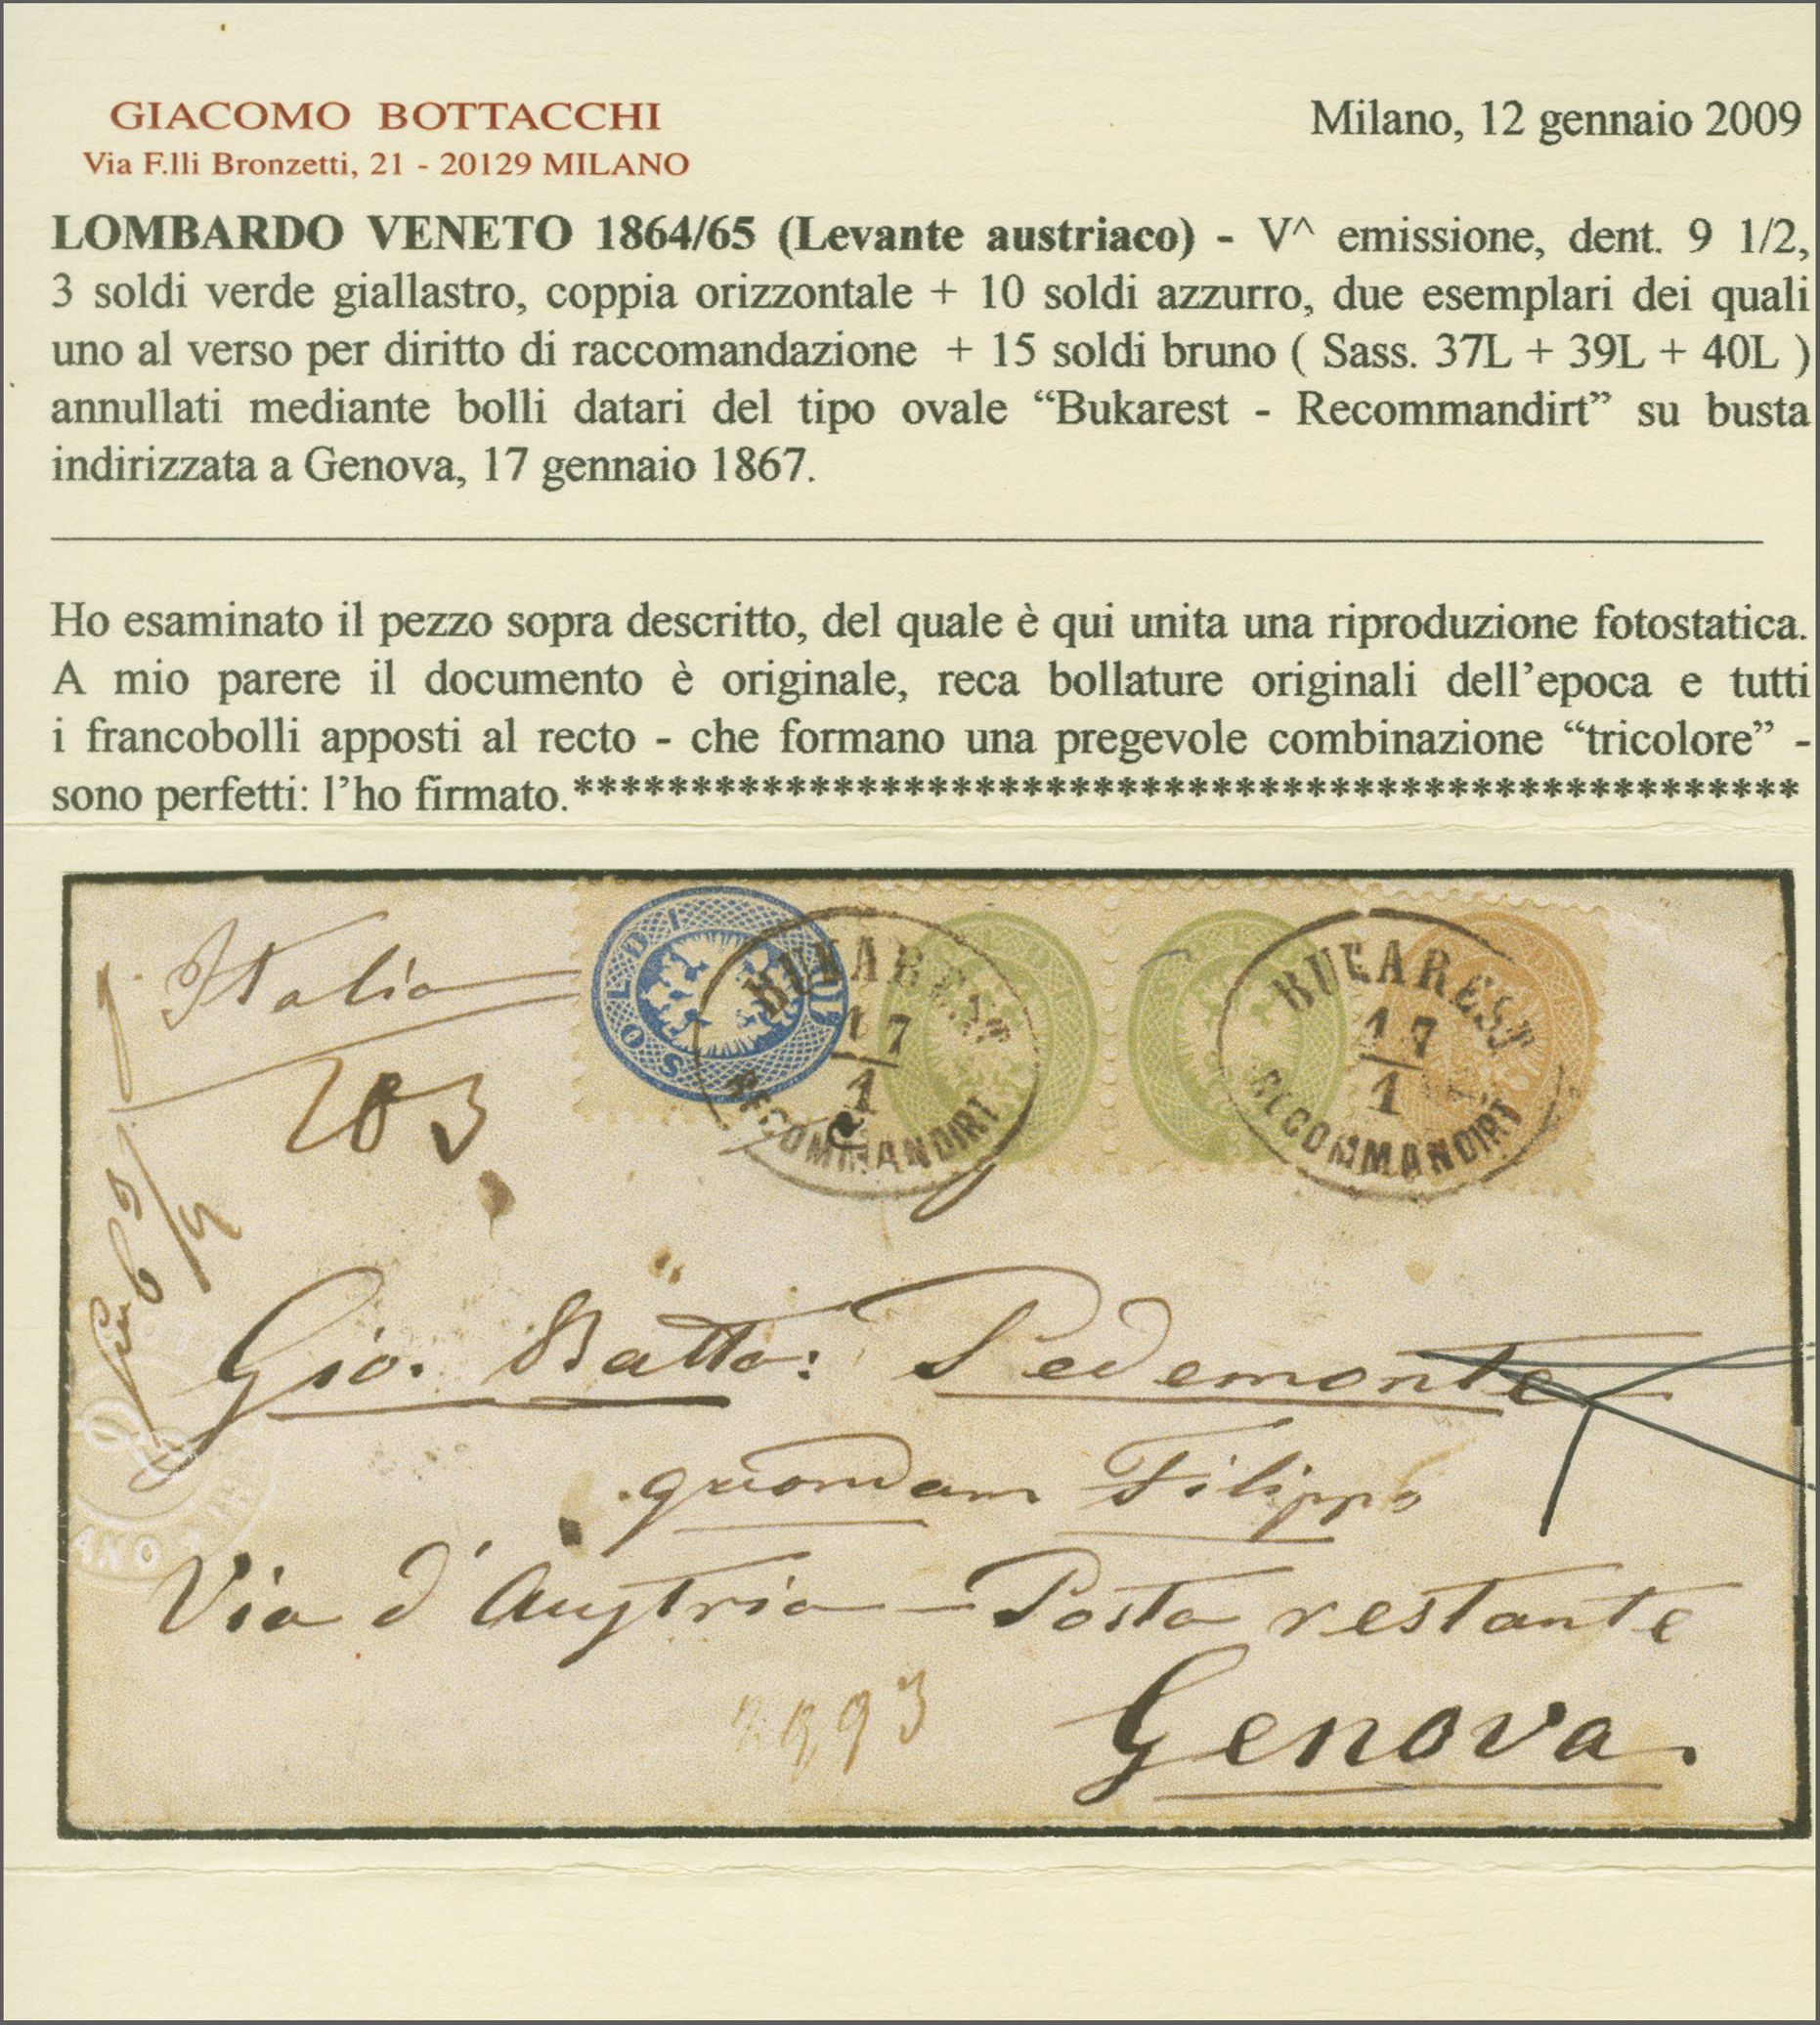 GIACOMO BOTTACCHI
Via F.lli Bronzetti, 21 - 20129 MILANO
Milano, 12 gennaio 2009
LOMBARDO VENETO 1864/65 (Levante austriaco) - V^ emissione, dent. 9 1/2,
3 soldi verde giallastro, coppia orizzontale + 10 soldi azzurro, due esemplari dei quali
uno al verso per diritto di raccomandazione + 15 soldi bruno ( Sass. 37L + 39L + 40L )
annullati mediante bolli datari del tipo ovale “Bukarest - Recommandirt” su busta
indirizzata a Genova, 17 gennaio 1867.
Ho esaminato il pezzo sopra descritto, del quale è qui unita una riproduzione fotostatica.
A mio parere il documento è originale, reca bollature originali dell’epoca e tutti
i francobolli apposti al recto - che formano una pregevole combinazione “tricolore” -
sono perfetti: l’ho firmato.****************************************************
Italia
SOLDI
BUKAREST
17
1
RECOMMANDIRT
BUKAREST
17
1
RECOMMANDIRT
Gio. Batta: Pedemonte
quondam Filippo
Via d'Austria - Posta restante
Genova.